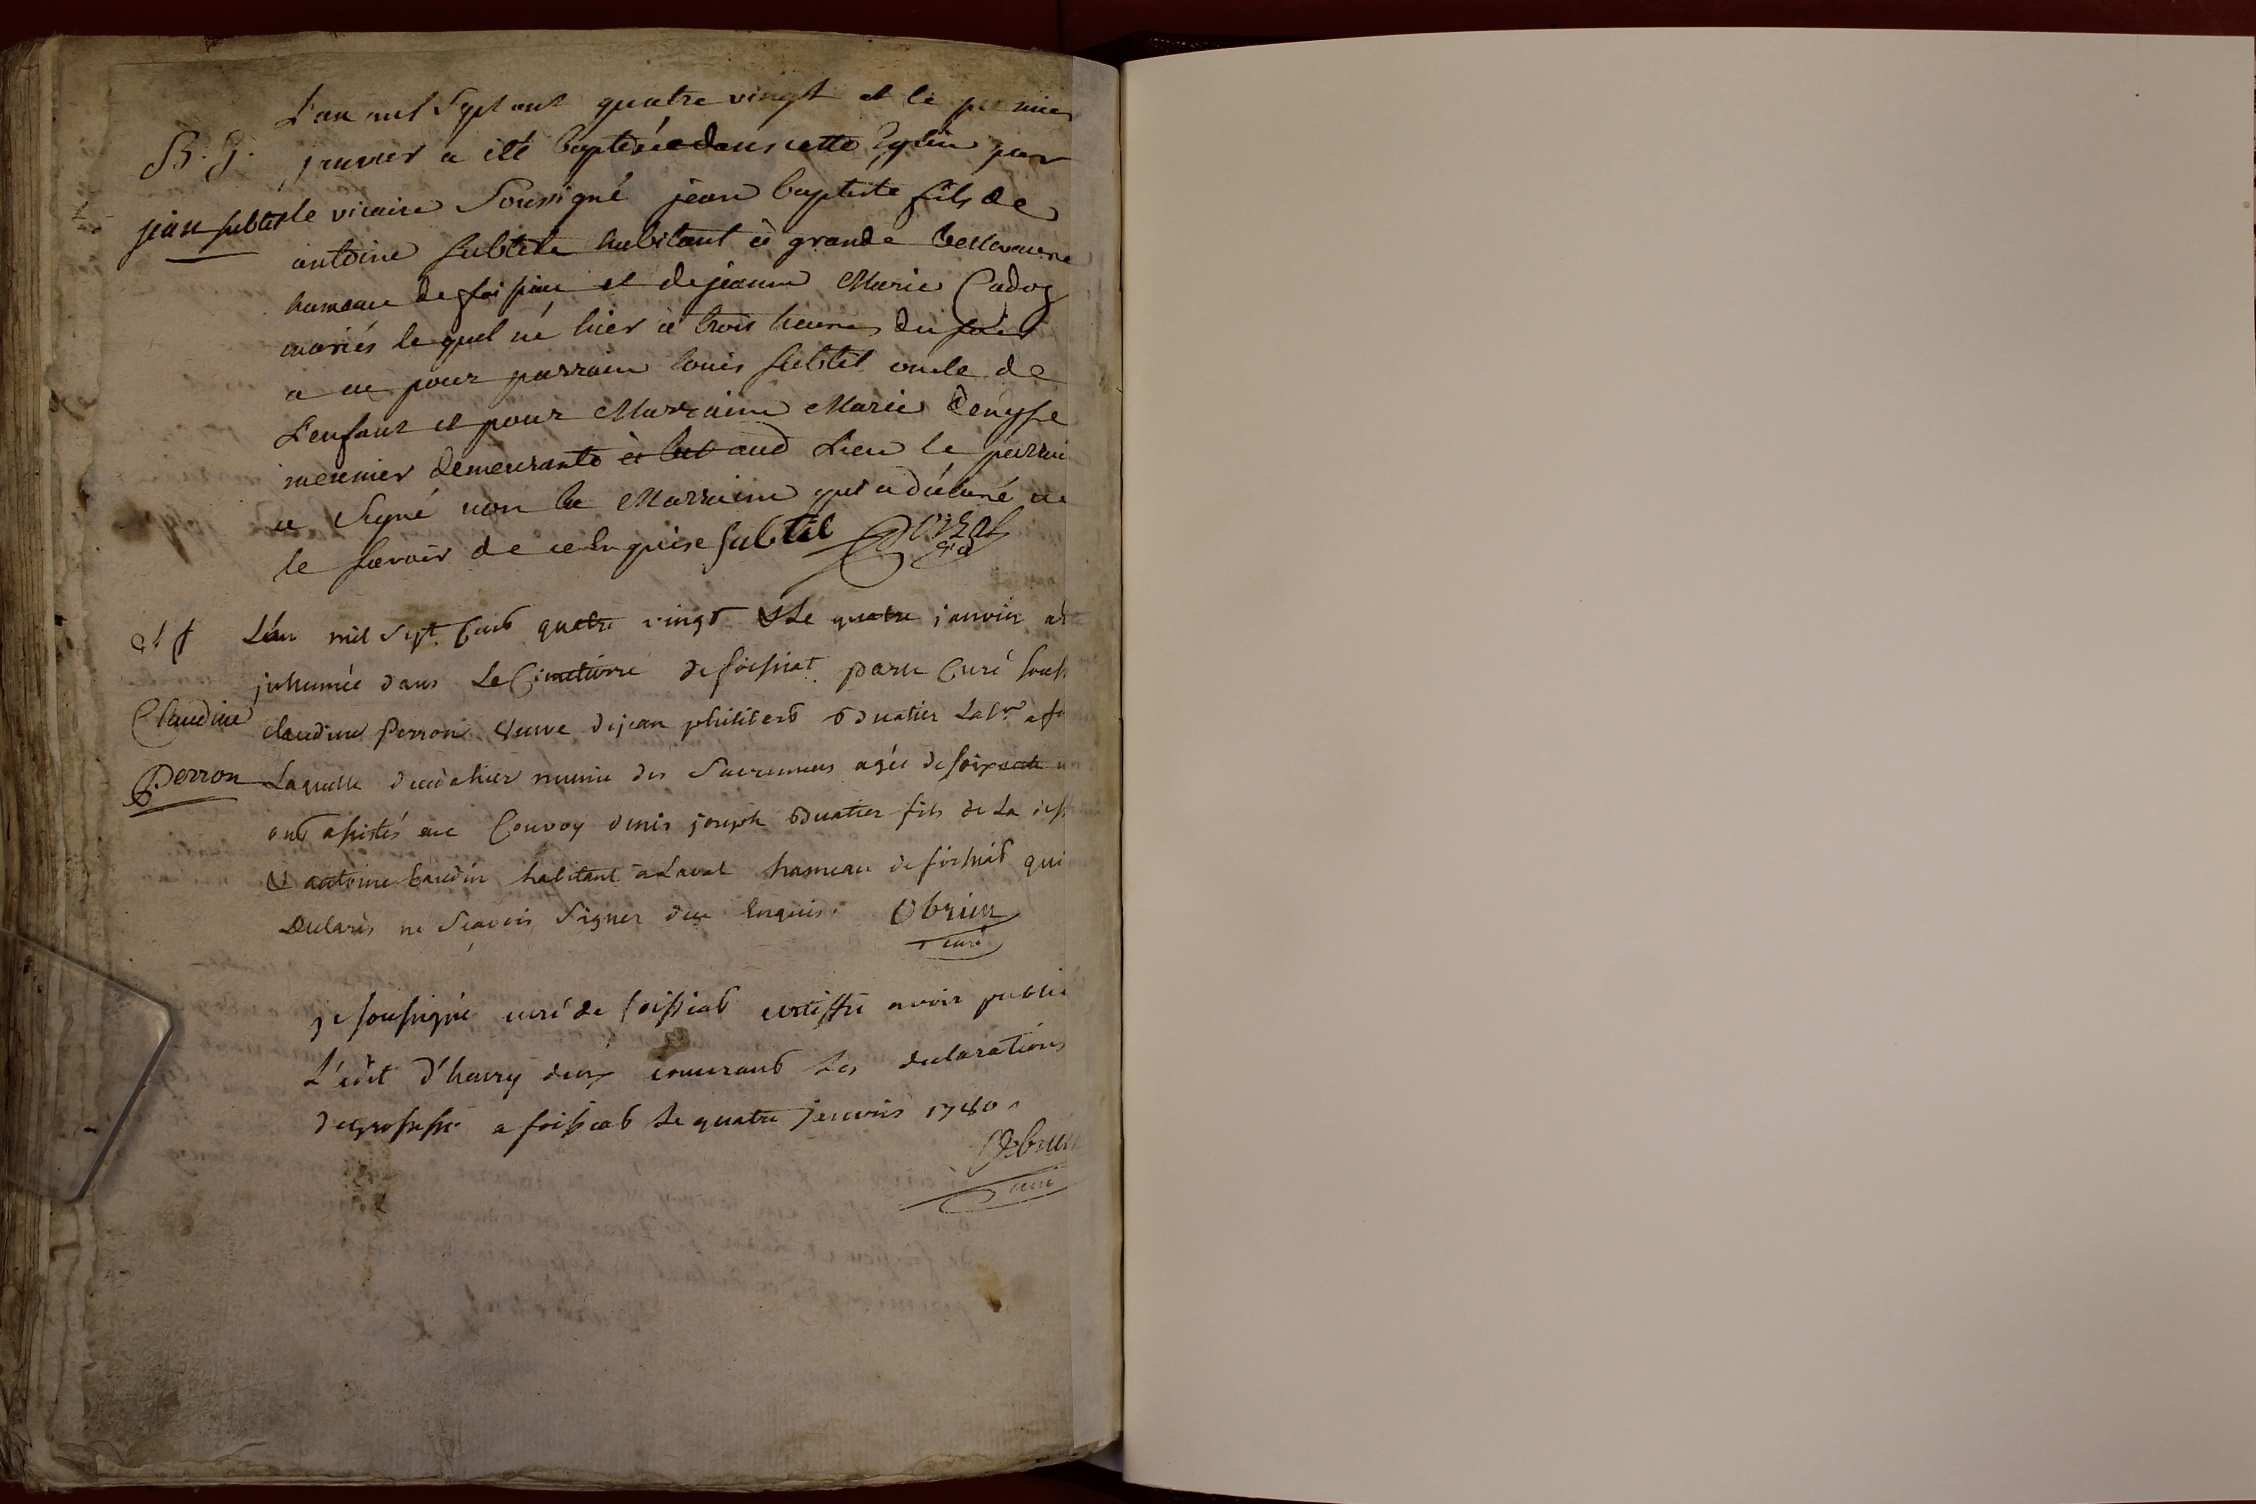 L'an mil Sept cent quatre vingt et le premier
B. G. janvier a été baptisée dans cette Eglise par
jean subtil le vicaire Soussigné jean baptiste fils de
antoine subtil habitant à grande
hameau de foissia et de jeanne Marie Cadoz
mariés le quel né hier à trois heures du soir
a eu pour parrain louis subtil oncle de
L'enfant et pour Marraine Marie denyse
meunier demeurante aud Lieu le parrai
a Signé non la Marraine qui a déclaré ne
le scavoir de ce Enquise subtil
L'an mil Sept Cent quatre vingt & Le quatre janvier a
inhumée dans Le Cimetierre de foissiat par le Curé souss
Claudine claudine Perron veuve de jean philibert Labr a f
Perron Laquelle decedé hier munie des Sacremens agée de soixante
ans assistés au Convoy denis joseph fils de La
& antoine habitant a Laval hameau de foissiat qui
Declarés ne Scavoir Signer de ce Enquis. Obrier
curé
je soussigné curé de foissiat certiffie avoir publié
L'edit d'henry deux concernant Les declarations
de grossesse a foissiat Le quatre janvier 1780.
curé